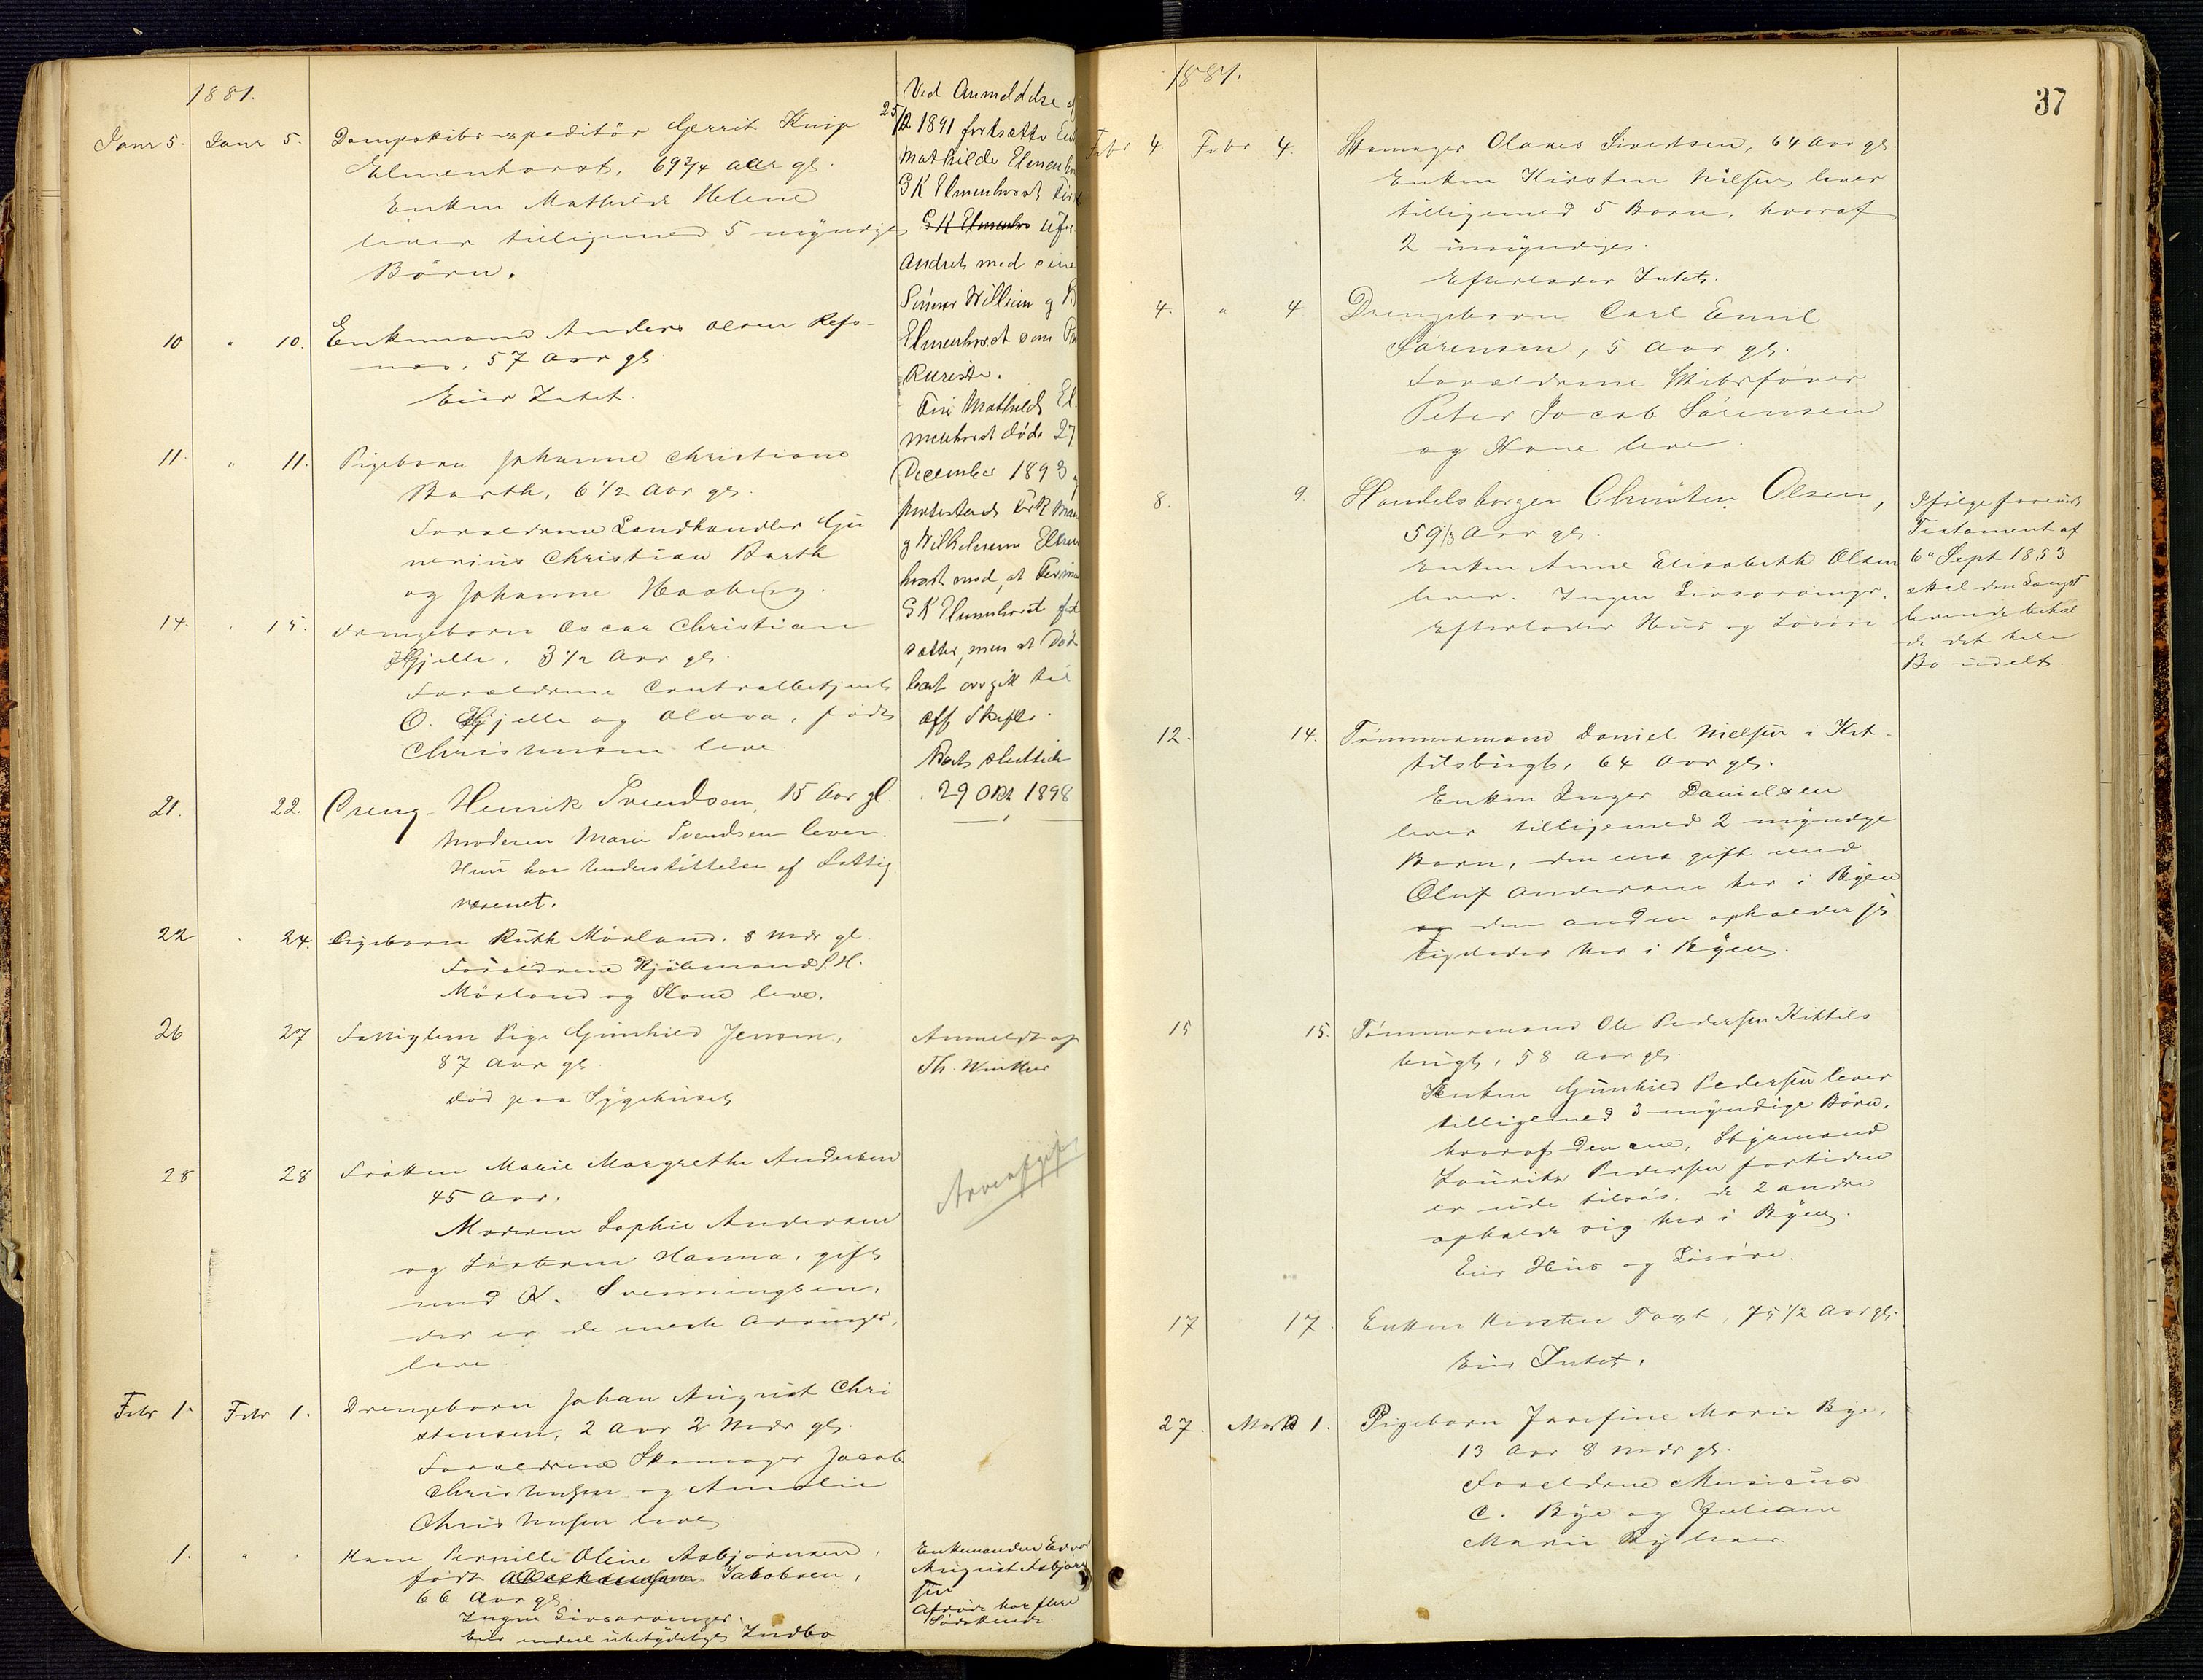 1881.
Janr 5. Janr 5. Dampskibsexpeditör Gerrit Knip
Elmenhorst, 69 2/4 Aar gl.
Enken Mathilde Helene
lever tilligemed 5 myndige
Börn.
10 " 10. Enkemand Anders Olsen Refs-
nes, 57 Aar gl.
Eier Intet.
11. " 11. Pigebarn Johanne Christiane
Barth, 6 1/2 Aar gl.
Forældrene Landhandler Gu
nerius Christian Barth
og Johanne Haaberg.
14. 15. Drengebarn Oscar Christian
Hjelle, 3 1/2 Aar gl.
Forældrene Controlbetjent
O. Hjelle og Olava, født
Christensen leve
21. 22. Dreng Henrik Svendsen, 15 Aar gl.
Moderen Marie Svendsen lever.
Hun har Understöttelse af Fattig
væsenet.
22 24. Pigebarn Ruth Mörland, 8 Mdr gl.
Forældrene Kjöbmand P. H.
Mörland og Kone leve.
26 27 Fattiglem Pige Gunhild Jensen,
87 Aar gl.
död paa Sygehuset
28 28 Fröken Marie Margrethe Andersen
45 Aar.
Moderen Sophie Andersen
og Sösteren Hanna, gift
med K. Svenningsen,
der er de neste Arvinger,
leve
Febr 1. Febr 1. Drengebarn Johan August Chri
stensen, 2 Aar 2 Mdr gl.
Forældrene Skomager Jacob
Christensen og Amalie
Christensen leve
1. " " Kone Pernille Oline Asbjørnsen,
født Jakobsen,
66 Aar gl.
Ingen Livsarvinger
Eier endeel ubetydeligt Indbo
Ved Anmeldelse
25/2 1891 fortsætte
Mathilde Elmenho
G K Elmenhorst
G K Elmenho
Andret med sine
Sönner William g
Elmenhorst som
kurister.
Fru Mathilde El
menhorst döde 27
December 1893
protesterede
g Wilhelmine Elmen
horst mod, at Firma
G K Elmenhorst fort
sattes, men at Död
boet overgik til
off Skifte.
Boet sluttede
29 Okt 1898
Anmeldt af
Th. Winther
Arveafgift
Enkemanden Edvard
August Asbjørn
sen
Afdöde har flere
Södskende.
1881.
37
Febr 4. Febr 4. Skomager Olaves Sivertsen, 64 Aar gl.
Enken Kirsten Nilsen lever
tilligemed 5 Børn, hvoraf
2 umyndige.
Efterlader Intet.
4. " 4 Drengebarn Carl Emil
Sørensen, 5 Aar gl.
Forældrene Skibsfører
Peter Jacob Sørensen
og Kone leve.
8. 9. Handelsborger Christen Olsen,
59 1/3 Aar gl.
Enken Anne Elisabeth Olsen
lever. Ingen Livsarvinger.
Efterlader Hus og Lösöre
Ifölge forevist
Testament af
6" Sept 1853
skal den Længst
levende behol
de det hele
Bo udelt.
12. 14. Tömmermand Daniel Nielsen i Kit
tilsbugt, 64 Aar gl.
Enken Inger Danielsen
lever tilligemed 2 myndige
Børn, den ene gift med
Oluf Andersen her i Byen
og den anden opholder sig
ligeledes her i Byen.
15 15. Tömmermand Ole Pedersen Kittils
bugt, 58 Aar gl.
Enken Gunhild Pedersen lever
tilligemed 3 myndige Börn,
hvoraf den ene, Styrmand
Lauritz Pedersen fortiden
er ude tilsös, de 2 andre
opholde sig her i Byen.
Eier Hus og Lösöre.
17 17. Enken Kirsten Vogt, 75 1/2 Aar gl.
Eier Intet.
27. Marts 1. Pigebarn Josefine Marie Bye,
13 Aar 8 Mdr gl.
Forældrene Musicus
C. Bye og Juliane
Marie Bye lever.